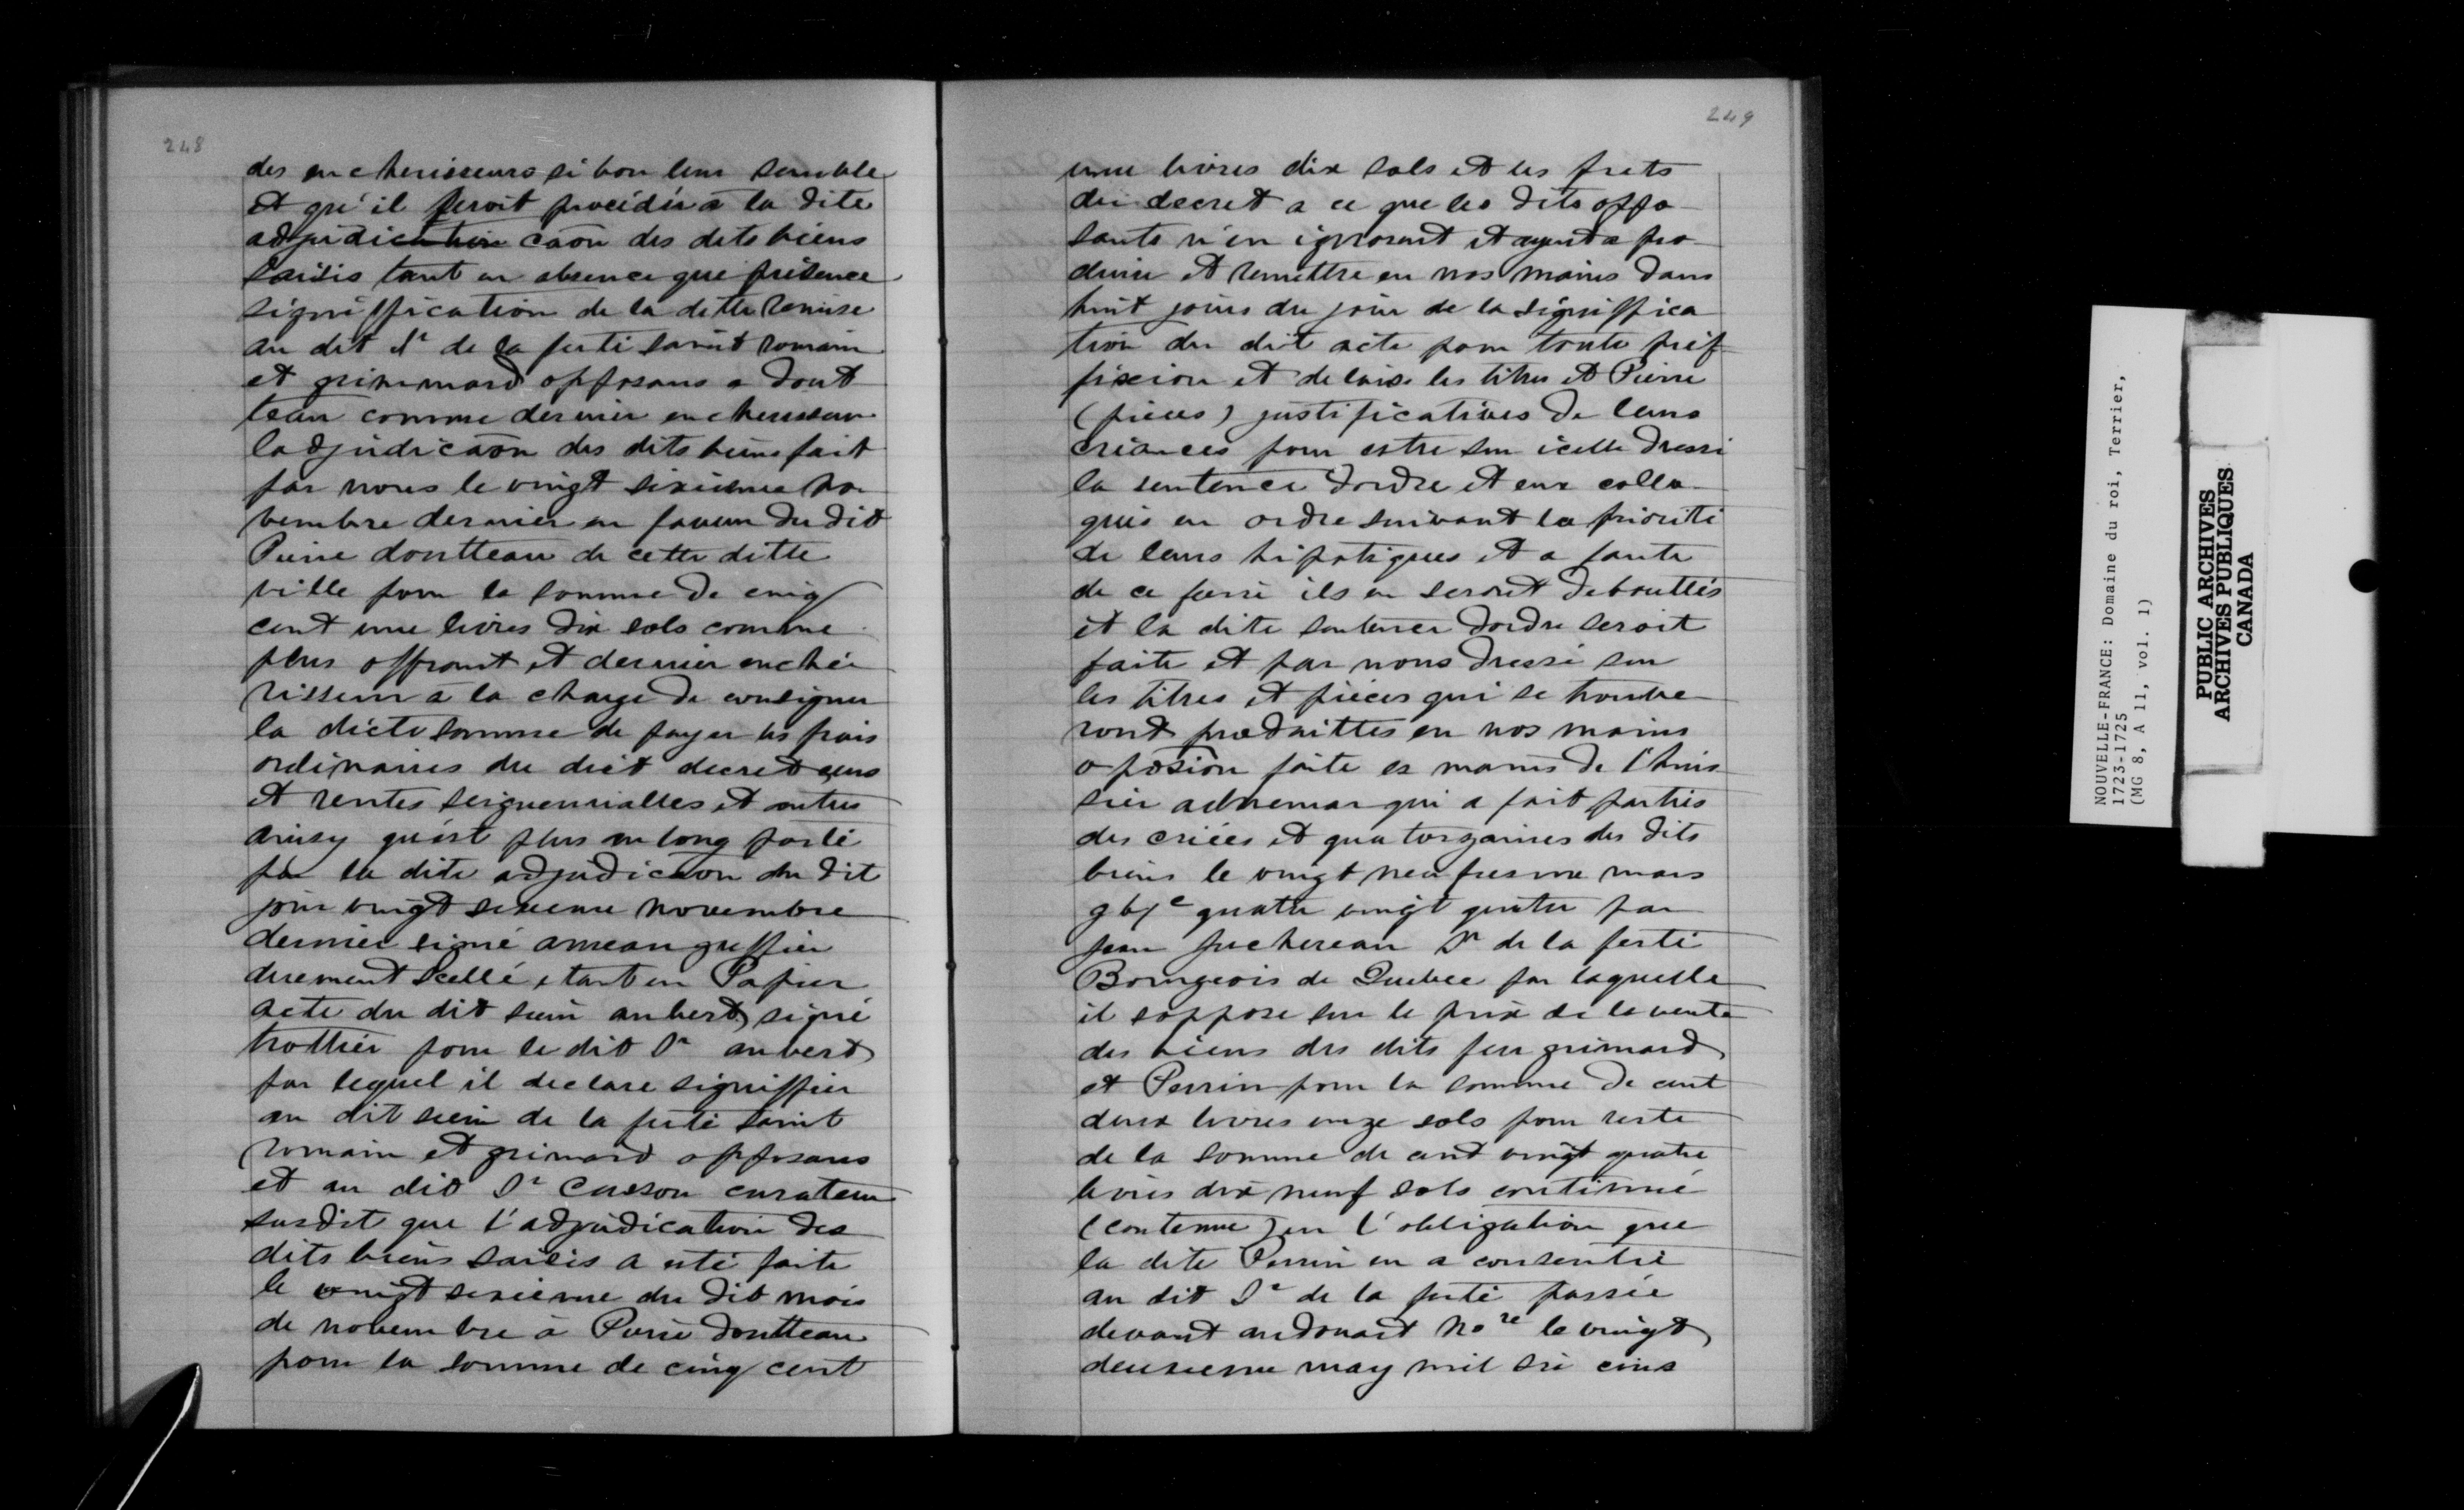 248
des encherisseurs si bon leur semble
et qu'il seroit procédér à la dite
adjudication caon des dits biens
saisis tant en absence que présence
signiffication de la ditte remise
au dit Sr de la ferté saint romain
et grimmard opposans a dout
teau comme dernier encherisseur
ladjudicaon des dits biens fait
par nous le vingt sixieme no
vembre dernier en faveur du dit
Pierre doutteau de cette ditte
ville pour la somme de cinq
cent une livres dix sols comme
plus offrant et dernier enché
risseur à la charge de consigner
la dicte somme de payer les frais
ordinaires du dict decret cens
et rentes seigneurialles et autres
ainsy qu'est plus au long porté
par la dite adjudicaon du dit
jour vingt sixieme novembre
dernier signé ameau greffier
duement scellé etant en Papier
acte du dit sieur aubert signé
trottier pour le dit Sr aubert
par lequel il declare signiffier
au dit sieur de la ferté saint
romain et grimard opposans
et au dit Sr Cusson curateur
susdit que l'adjudication des
dits biens saisis a eté faite
le vingt sixieme du dit mois
de novembre à Pierre doutteau
pour la somme de cinq cent
249
une livres dix sols et les frets
du decret a ce que les dits oppo
sants n'en ignorent et ayent a pro
duire et remettre en nos mains dans
huit jours du jour de la signiffica
tion du dit acte pour toute préf
fixion et delais les titres et Pierre
(pieces) justificatives de leurs
créances pour estre sur icelle dressé
la sentence dordre et eux collo
qués en ordre suivant la priorité
de leurs hipotiques et a faute
de ce faire ils en seront debouttés
et la dite sentence dordre seroit
faite et par nous dressé sur
les titres et pièces qui se trouve
ront produittes en nos mains
oposion faite es mains de l'huis
sier adhemar qui a fait parties
des criées et quatorzaines des dits
biens le vingt neufiesme mars
gbjc quatre vingt quatre par
Jean Juchereau Sr de la ferté
Bourgeois de Quebec par laquelle
il soppose sur le prix de la vente
des biens des dits feu grimard
et Perrin pour la somme de cent
deux livres onze sols pour reste
de la somme de cent vingt quatre
livres dix neuf sols continué
(contenue) en l'obligation que
la dite Perrin en a consentie
au dit Sr de la ferté passée
devant audouart no re le vingt
deuxieme may mil six cens
NOUVELLE-FRANCE: Domaine du roi, Terrier,
1723-1725
(MG 8, A 11, vol. 1)
PUBLIC ARCHIVES
ARCHIVES PUBLIQUES
CANADA